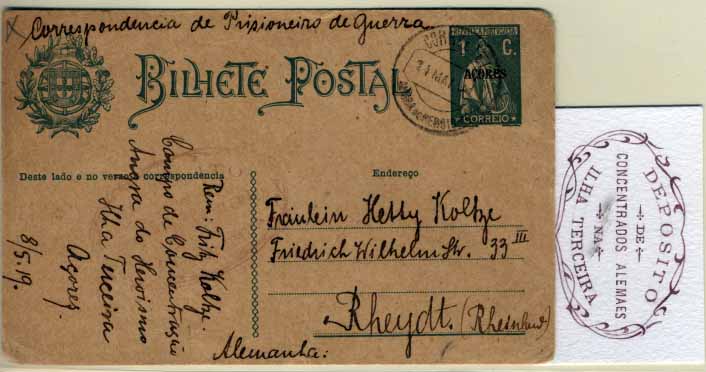 Correspondencia de Prisioneiro de Guerra
BILHETE POSTAL
REPUBLICA PORTUGUESA
1 C.
AÇORES
CORREIO
Deste lado e no verso a correspondencia
Endereço
Rem: Fritz Koltze.
Campo de Concentração
Angra do Heroismo
Ilha Terceira
Açores.
8/5.19.
Fräulein Hetty Koltze
Friedrich Wilhelm Str. 33 III
Rheydt. (Rheinland)
Alemanha:
DEPOSITO
DE
CONCENTRADOS ALEMAES
NA
ILHA TERCEIRA